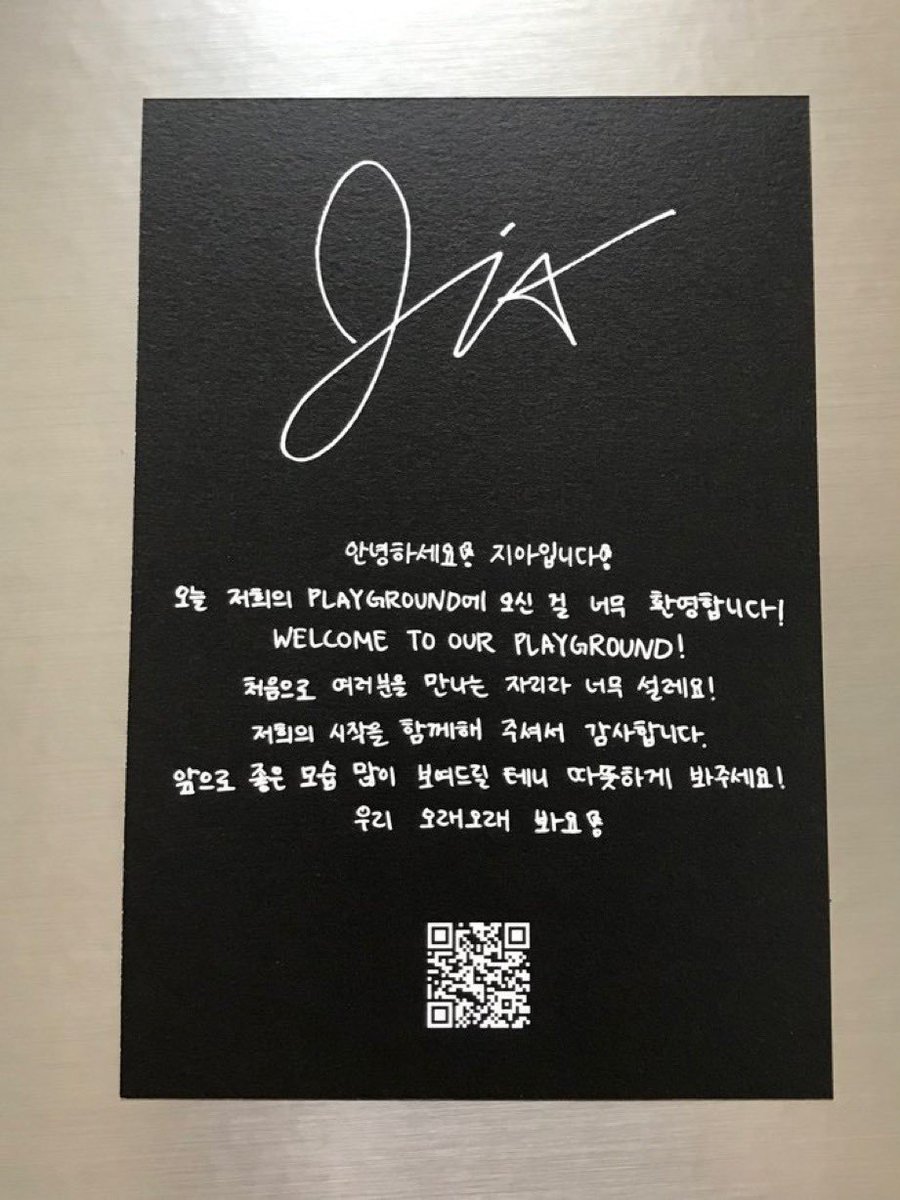 JiA
안녕하세요! 지아입니다!
오늘 저희의 PLAYGROUND에 오신 걸 너무 환영합니다!
WELCOME TO OUR PLAYGROUND!
처음으로 여러분을 만나는 자리라 너무 설레요!
저희의 시작을 함께해 주셔서 감사합니다.
앞으로 좋은 모습 많이 보여드릴 테니 따뜻하게 봐주세요!
우리 오래오래 봐요!